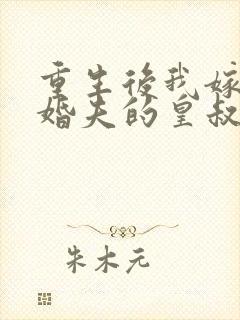 重生後我嫁
婚夫的皇叔
朱木元